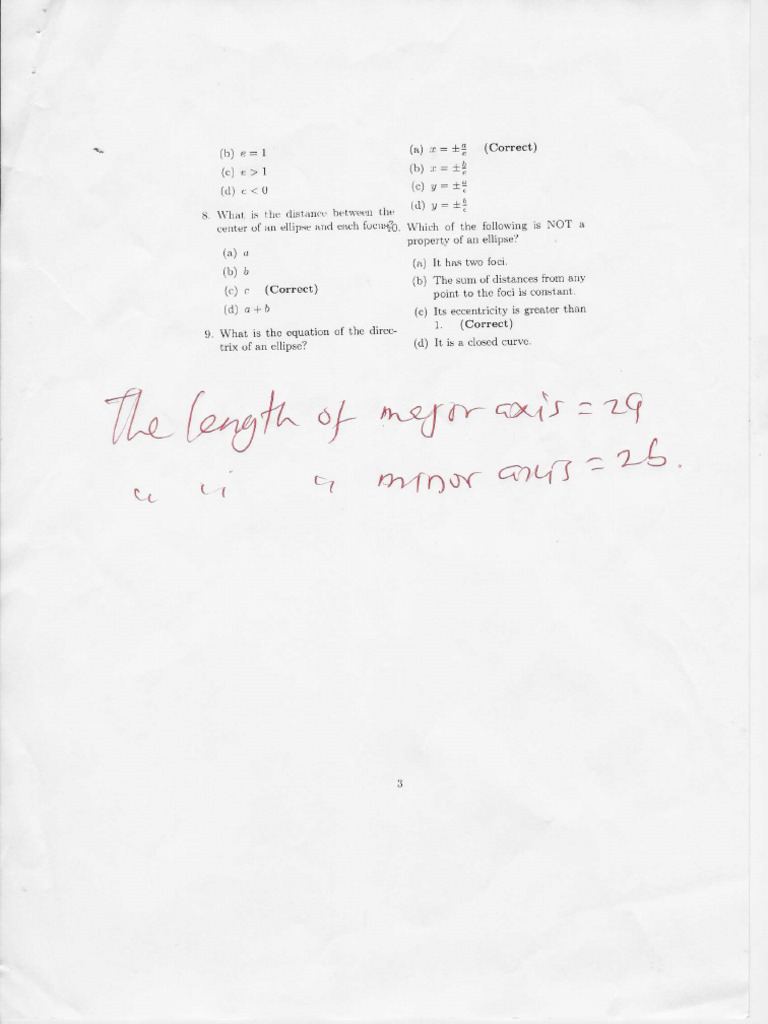 (b) e = 1
(c) e > 1
(d) e < 0
8. What is the distance between the
center of an ellipse and each focus?
(a) a
(b) b
(c) c (Correct)
(d) a + b
9. What is the equation of the direc-
trix of an ellipse?
(a) x = ±a/e (Correct)
(b) x = ±b/e
(c) y = ±a/e
(d) y = ±b/e
10. Which of the following is NOT a
property of an ellipse?
(a) It has two foci.
(b) The sum of distances from any
point to the foci is constant.
(c) Its eccentricity is greater than
1. (Correct)
(d) It is a closed curve.
The length of mejor axis = 2a
" " " minor axis = 2b.
3